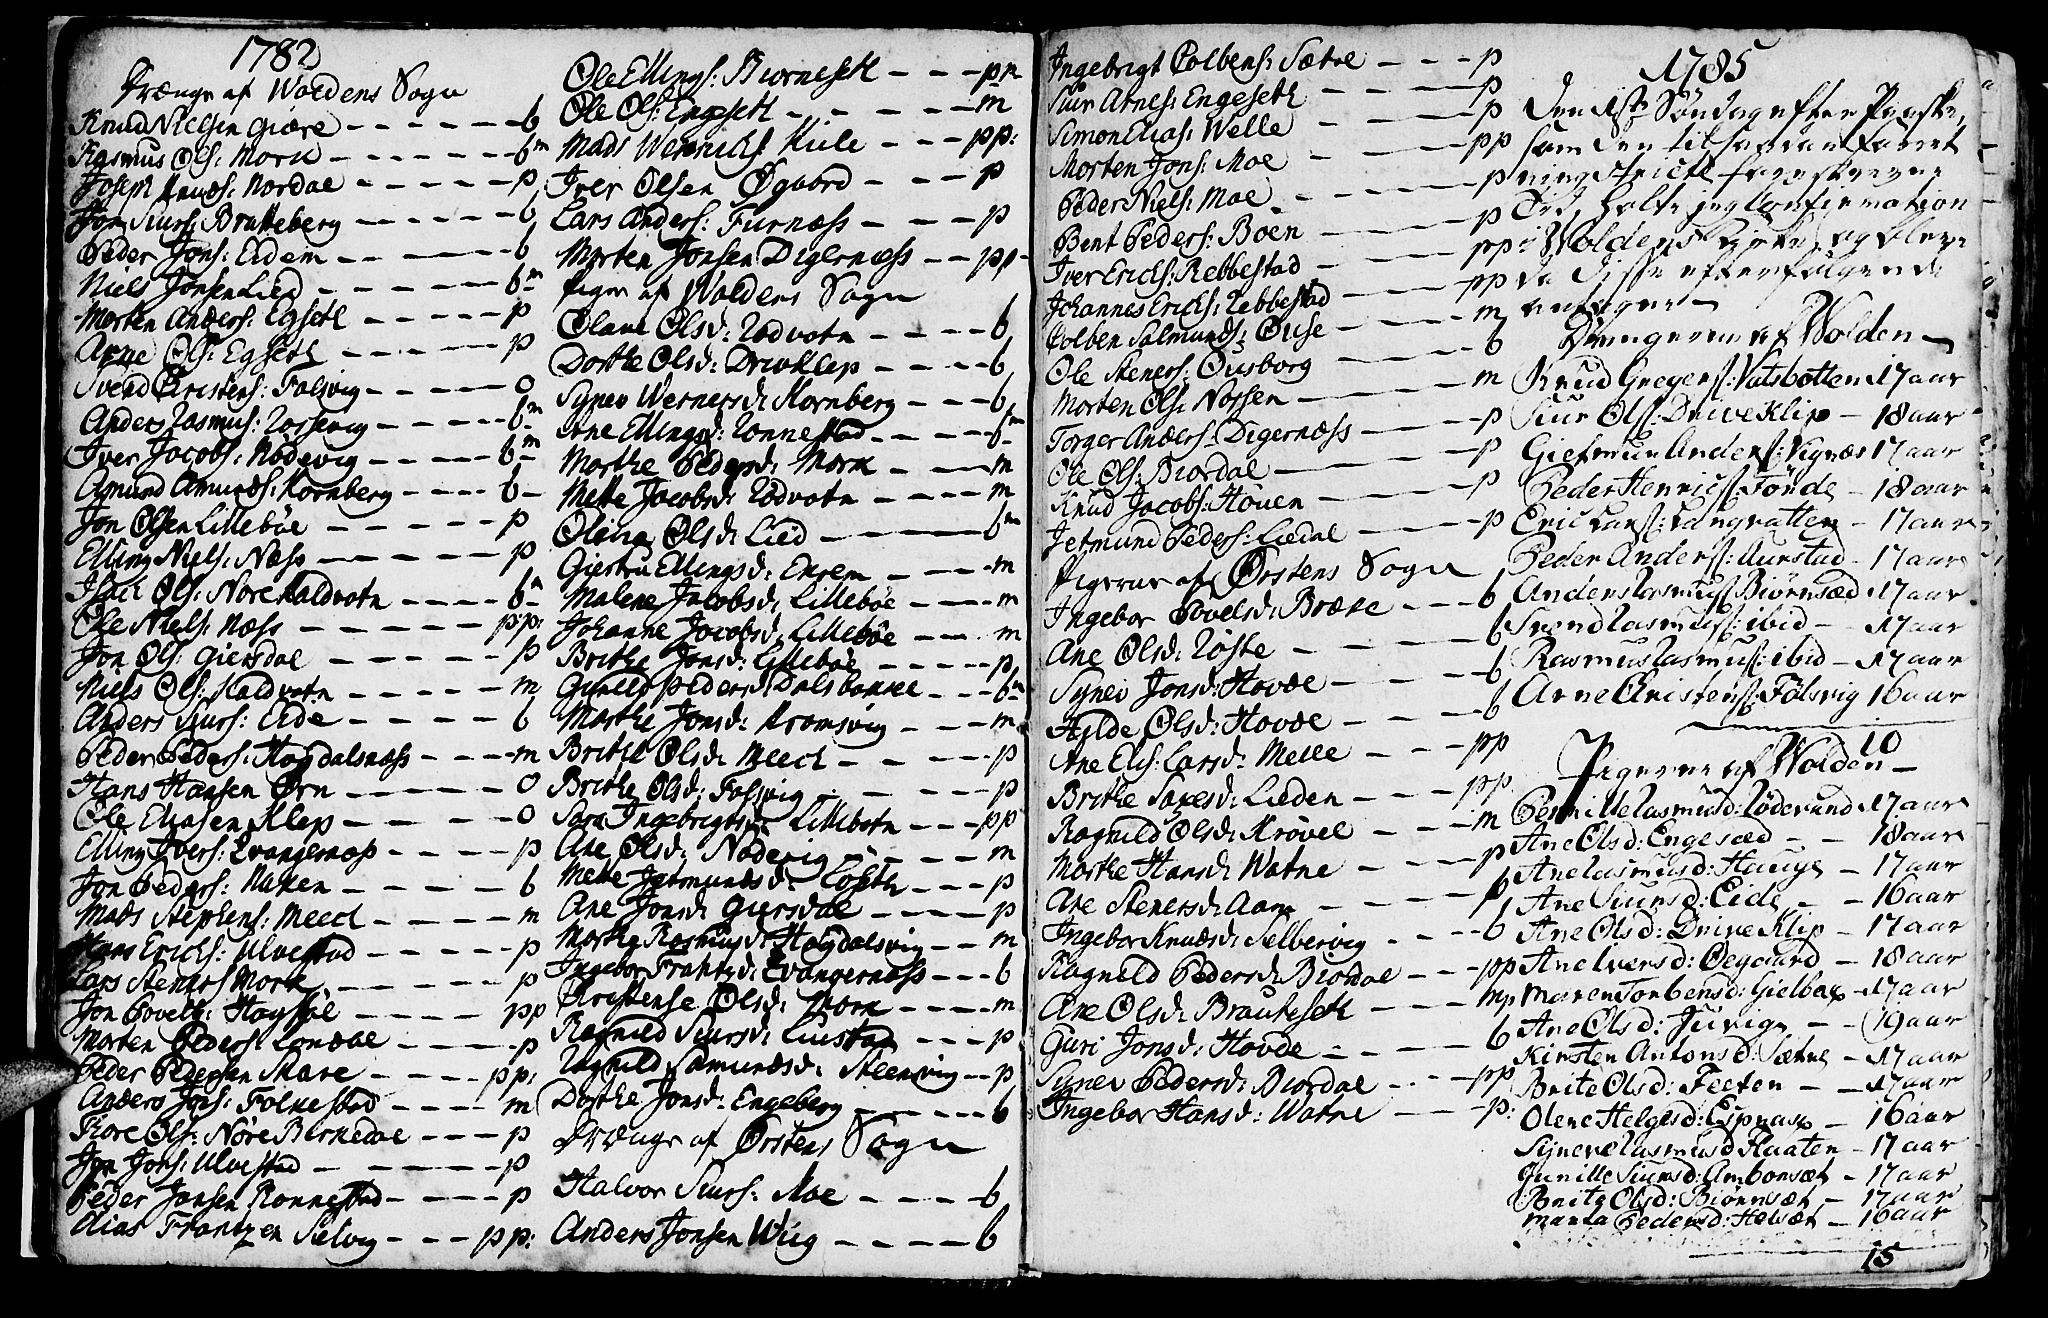 1782
Drænge af Woldens Sogn
Knud Nielsen Giære - - - - - - b
Rasmus Ols: Mork - - - - - - bm
Joseph Knuds: Nordal - - - - - p
Jon Siurs: Bratteberg - - - - - b
Peder Jons: Eidem - - - - - b
Niels Jonsen Lied - - - - - bm
Morten Anders: Egseth - - - - p
Arne Ols: Egseth - - - - p
Svend Christens: Folsvig - - - - 0
Anders Rasmus: Rossevig - - - - bm
Iver Jacobs: Rødevig - - - - bm
Amund Amunds: Kornberg - - - - b
Jon Olsen Lillebøe - - - - - p
Elling Niels: Næss - - - - - p
Isach Ols: Nore Kaldvatn - - - - bm
Ole Niels: Næss - - - - - pp:
Jon Ols: Giersdal - - - - - p
Niels Ols: Kaldvatn - - - - - m
Anders Siurs: Eide - - - - - b
Peder Peders: Høgdalsnæss - - - m
Hans Hansen Ørn - - - - - 0
Ole Eliasen Klep - - - - - 0
Elling Ivers: Evangernæss - - - - p
Jon Peders: Naken - - - - - b
Mads Stephens: Meed - - - - - m
Hans Erichs: Ulvestad - - - - p
Lars Steners: Mork - - - - - p
Jon Povels: Høydal - - - - - pp
Morten Peders: Londal - - - - p
Peder Pedersen Mare - - - - pp:
Anders Jons: Folkestad - - - - m
Kore Ols: Nore Birkedal - - - - p
Jon Jons: Ulvestad - - - - - p
Peder Jonsen Rønnestad - - - - p
Elias Frantzen Selvig - - - pp:
Ole Ellings: Biørneseth - - - pn
Ole Ols: Engeseth - - - - - m
Mads Wernichs Kile - - - pp:
Iver Olsen Øgaard - - - p
Lars Anders: Furnæss - - - p
Morten Jonsen Digernæss - - pp
Piger af Woldens Sogn
Olave Olsd: Rødvatn - - - - b
Dorthe Olsd: DrivKlep - - - - b
Synev Wernersd: Kornberg - - - b
Ane Ellingsd: Rønnestad - - - - bm
Marthe Pedersd: Mork - - - m
Mette Jacobsd: Rødvatn - - - m
Olina Olsd: Lied - - - bm
Giertru Ellingsd: Ekrem - - - m
Malene Jacobsd: Lillebøe - - - m
Johanne Jacobsd: Lillebøe - - - m
Brithe Jonsd: Lillebøe - - - - p
Gunild Pedersd: Dalsbakke - - - bm
Marthe Jonsd: Kromsvig - - - m
Brithe Olsd: Meed - - - - p
Brithe Olsd: Folsvig - - - - p
Sara Ingebrigtsd: Lillebøtn - - - pp
Ane Olsd: Nødevig - - - - m
Mette Jetmundsd: Løsth - - - p
Ane Jonsd: Giersdal - - - - p
Marthe Rasmusd: Høydalsvig - - m
Ingebor Frantzd: Evangernæss - - b
Christense Olsd: Mork - - - m
Ragnild Siursd: Liustad - - - p
Ragnild Samundsd: Steensvig - - p
Dorthe Jonsd: Engeberg - - - - b
Drænge af Ørstens Sogn
Halvor Siurs: Moe - - - - b
Anders Jonsen Wiig - - - - b
Ingebrigt Colbens: Sætre - - - p
Siur Arnes: Engeseth - - - - p
Simon Elias: Welle - - - - p
Morten Jons: Moe - - - - pp
Peder Niels: Moe - - - - p
Bent Peders: Boen - - - - p
Iver Erichs: Rebbestad - - - pp
Johannes Erichs: Rebbestad - - - pp
Colben Salmunds: Ouse - - - m
Ole Steners: Ousborg - - - b
Morten Ols: Nossen - - - m
Torger Anders: Digernæss - - - p
Ole Ols: Biordal - - - p
Knud Jacobs: Hoven - - - p
Jetmund Peders: Liedal - - - p
Pigerne af Ørstens Sogn
Ingebor Povelsd: Bræke - - - b
Ane Olsd: Røste - - - - b
Synev Jonsd: Hovde - - - - b
Hylde Olsd: Hovde - - - - b
Ane Elis: Larsd: Melle - - - pp
Brithe Saxesd: Lieden - - - pp
Ragnild Olsd: Krøvel - - - m
Marthe Hansd: Watne - - - p
Ane Stenersd: Aam - - - - b
Ingebor Knudsd: Selbervig - - - b
Ragnild Pedersd: Biordal - - - pp
Ane Olsd: Brauteseth - - - mp
Guri Jonsd: Hovde - - - - b
Synev Pedersd: Biordal - - - pp
Ingebor Hansd: Watne - - - p:
1785
Den 1ste Søndag efter Paaske,
som den til
Tid, holte jeg Confirmation
i Woldens Kirke, og bleve
da disse efterfølgende
antagne
Drengerne af Wolden
Knud Gregers: Vatsbotten 17 aar
Siur Ols: Driveklip - 18 aar
Gietmun Anders: Vignæs 17 aar
Peder Henrics: Førde - 18 aar
Eric Lars: Langvatten - 17 aar
Peder Anders: Aurstad - 17 aar
Anders Rasmus: Biørnsæd 17 aar
Svend Rasmus: ibid - 17 aar
Rasmus Rasmus: ibid - 17 aar
Arne Christens: Følsvig 16 aar
10
Pigerne af Wolden -
Pernille Rasmusd: Røderund 17 aar
Ane Olsd: Engesæd - - 18 aar
Ane Rasmusd: Hauge - 17 aar
Ane Siursd: Eide - - 16 aar
Ane Olsd: Drive Klip - 17 aar
Ane Iversd: Øegaard - 18 aar
Maren Torbensd: Gielbak - 17 aar
Ane Olsd: Juvige - - 19 aar
Kirsten Antonsd: Sætre - 17 aar
Brite Olsd: Feeten - - 17 aar
Olene Helgesd: Espnæs - 16 aar
Synneve Rasmusd: Haaten - 17 aar
Gunille Siursd: Ambonsæt - 17 aar
Brite Olsd: Biørnsæt - 17 aar
Marta Pedersd: Helsæt - 16 aar
15